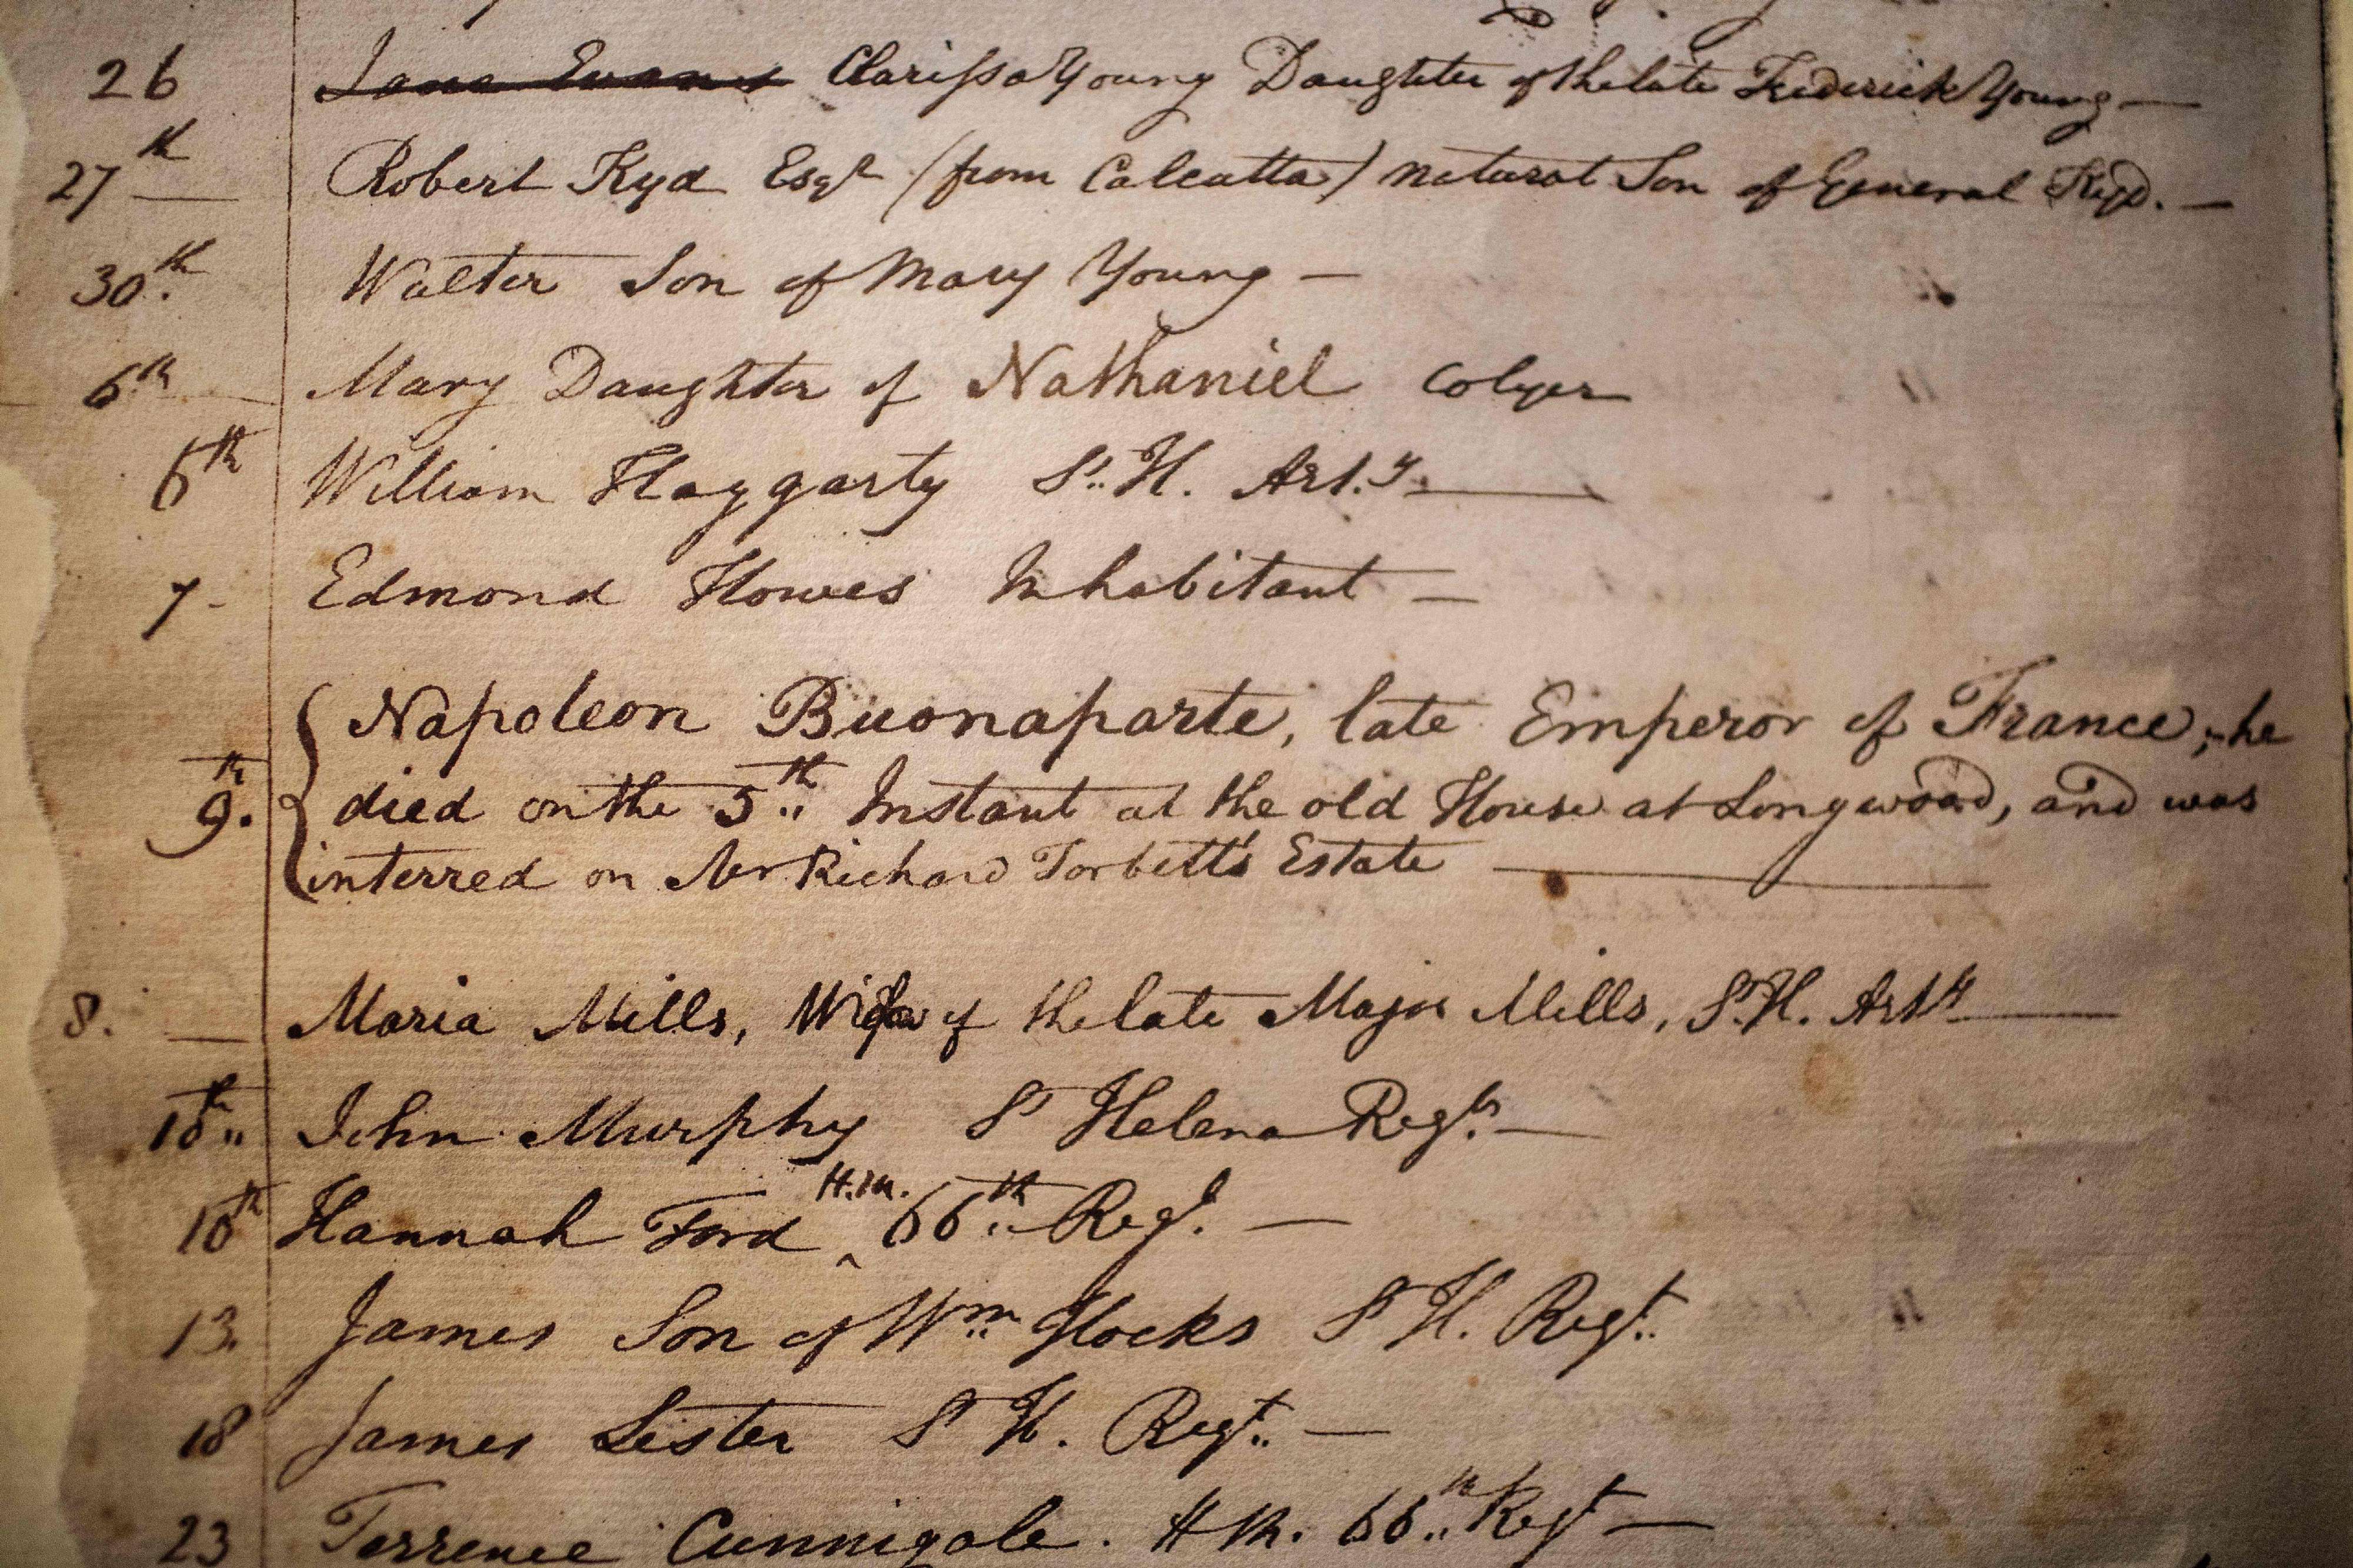 26 Jane Evans Clarissa Young Daughter of the late Frederick Young —
27th — Robert Kyd Esqr (from Calcutta) natural Son of General Kyd. —
30th. Walter Son of Mary Young —
6th — Mary Daughter of Nathaniel Colyer
6th William Haggarty St. H. Art.y —
7 - Edmond Howes Inhabitant —
Napoleon Buonaparte, late Emperor of France, he
9th. died on the 5th Instant at the old House at Longwood, and was
interred on Mr Richard Torbett's Estate —
8. — Maria Mills, of the late Major Mills, St. H. Arty —
10th John Murphy St Helena Regt. —
10th Hannah Ford H.M. 66th Regt. —
13 James Son of Wm Hocks St H. Regt.
18 James Lister St H. Regt. —
23 Terrence Cunnigale. H M. 66th Regt —